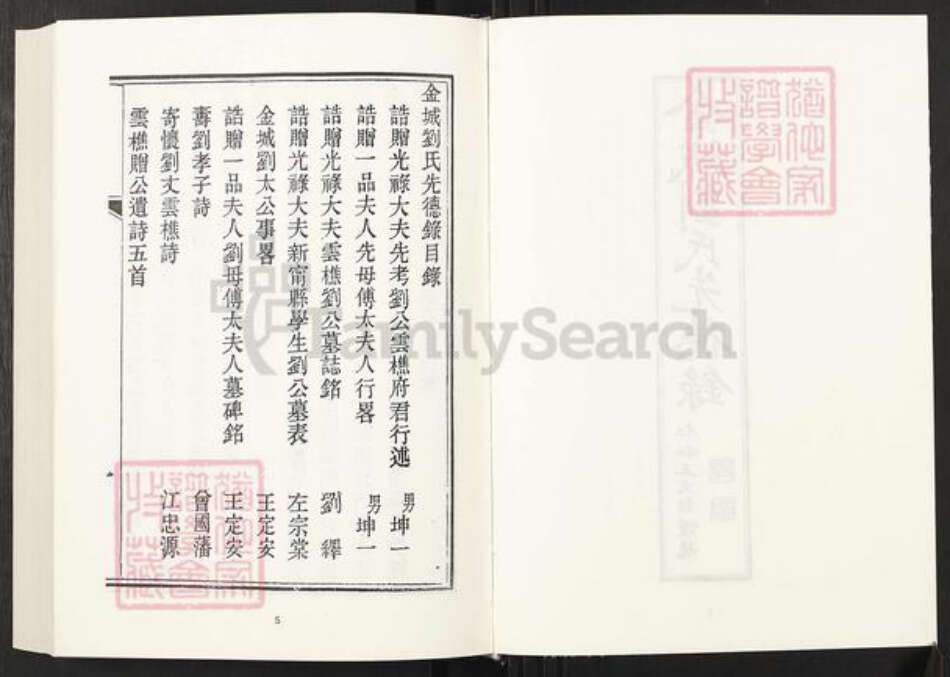 金城劉氏先德錄目錄
誥贈光祿大夫先考劉公雲樵府君行述 男坤一
誥贈一品夫人先母傅太夫人行畧 男坤一
誥贈光祿大夫雲樵劉公墓誌銘 劉繹
誥贈光祿大夫新甯縣學生劉公墓表 左宗棠
金城劉太公事畧 王定安
誥贈一品夫人劉母傅太夫人墓碑銘 王定安
壽劉孝子詩 曾國藩
寄懷劉丈雲樵詩 江忠源
雲樵贈公遺詩五首
5
FamilySearch
猶他家
譜學會
收藏
猶他家
譜學會
收藏